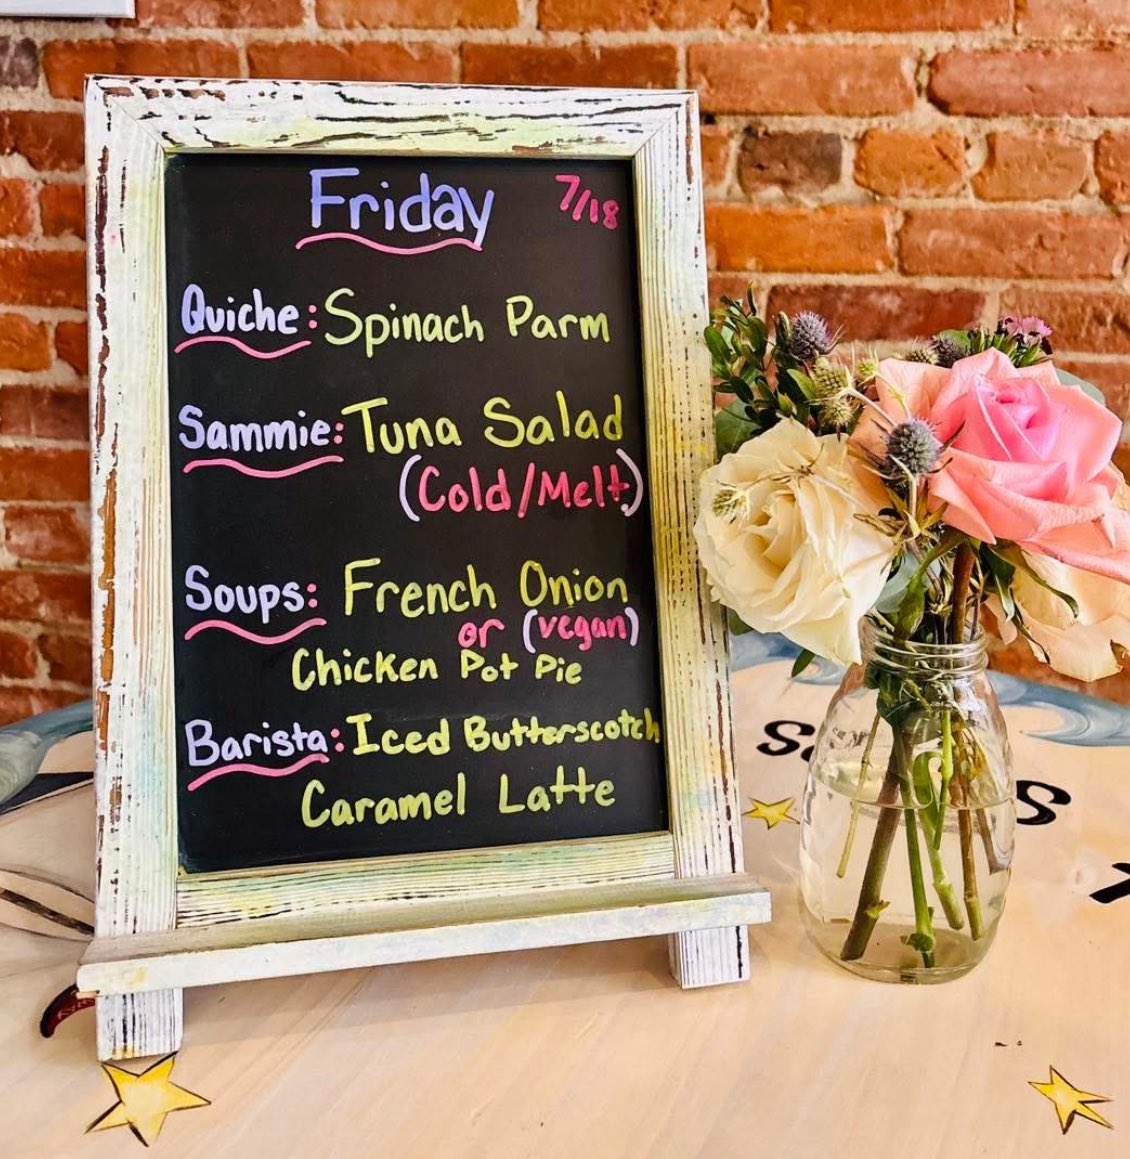 Friday 7/18
Quiche: Spinach Parm
Sammie: Tuna Salad
(Cold/Melt)
Soups: French Onion
or (vegan)
Chicken Pot Pie
Barista: Iced Butterscotch
Caramel Latte